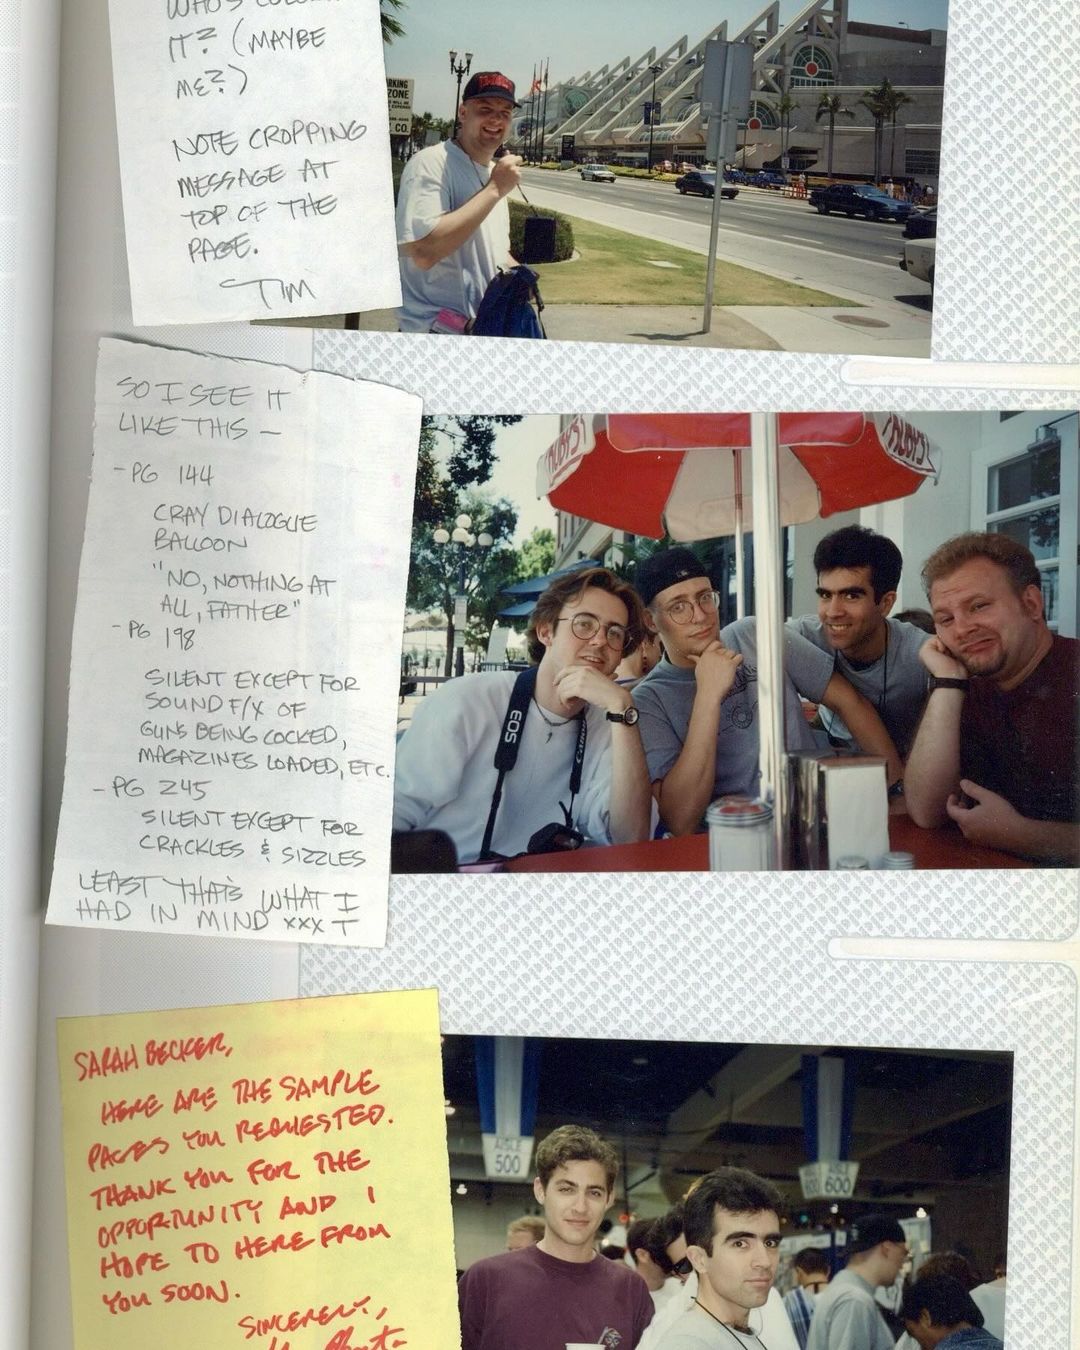 IT? (MAYBE
ME?)
NOTE CROPPING
MESSAGE AT
TOP OF THE
PAGE.
TIM
PARKING
ZONE
CO.
SO I SEE IT
LIKE THIS —
- PG 144
CRAY DIALOGUE
BALLOON
"NO, NOTHING AT
ALL, FATHER"
- PG 198
SILENT EXCEPT FOR
SOUND F/X OF
GUNS BEING COCKED,
MAGAZINES LOADED, ETC.
- PG 245
SILENT EXCEPT FOR
CRACKLES & SIZZLES
LEAST THAT'S WHAT I
HAD IN MIND XXX T
RUBY'S
RUBY'S
EOS
Canon
SARAH BECKER,
HERE ARE THE SAMPLE
PAGES YOU REQUESTED.
THANK YOU FOR THE
OPPORTUNITY AND I
HOPE TO HERE FROM
YOU SOON.
SINCERELY,
AISLE
500
AISLE
600